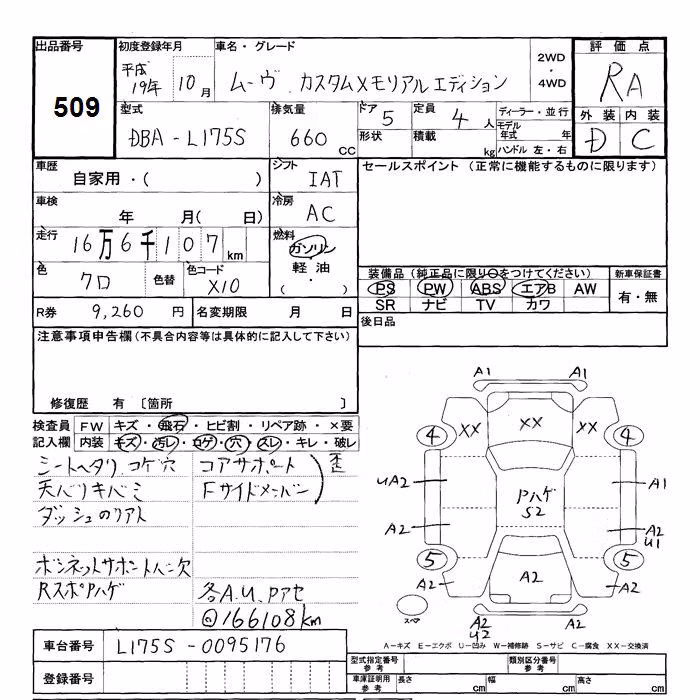 出品番号 初度登録年月 車名・グレード 評価点
509
平成19年 10月 ムーヴ カスタムXメモリアルエディション 2WD・4WD RA
型式 排気量 ドア 定員 ディーラー・並行 外装 内装
DBA-L175S 660cc 5 4人 モデル年式 年 D C
形状 積載 kg ハンドル 左・右
車歴 シフト セールスポイント (正常に機能するものに限ります)
自家用・( ) IAT
車検 冷房
年 月( 日) AC
走行 燃料
16万6千107km ガソリン
軽油
( ・ )
色 色替 色コード
クロ X10
装備品 (純正品に限り○をつけてください) 新車保証書
PS PW ABS エアB AW 有・無
SR ナビ TV カワ
R券 9,260円 名変期限 月 日
後日品
注意事項申告欄(不具合内容等は具体的に記入して下さい)
修復歴 有 〔箇所
検査員 FW キズ・飛石・ヒビ割・リペア跡・×要
記入欄 内装 キズ・汚レ・コゲ・穴・スレ・キレ・破レ
シートヘタリ コゲ穴 コアサポート 歪
天バリキバミ Fサイドメンバー
ダッシュのリアト
ボンネットサポントハ一欠
RスポPハゲ 各A.U.Pアセ
@166108km
車台番号 L175S-0095176
登録番号
A1 A1
XX XX XX
4 4
UA2 A1
Pハゲ
S2
A2 A2
U1
5 5
A2 A2 A2
スペア A2 A2
U2
A-キズ E-エクボ U-凹み W-補修跡 S-サビ C-腐食 XX-交換済
型式指定番号 参考 類別区分番号 参考
車庫証明用 参考 長さ cm 幅 cm 高さ cm